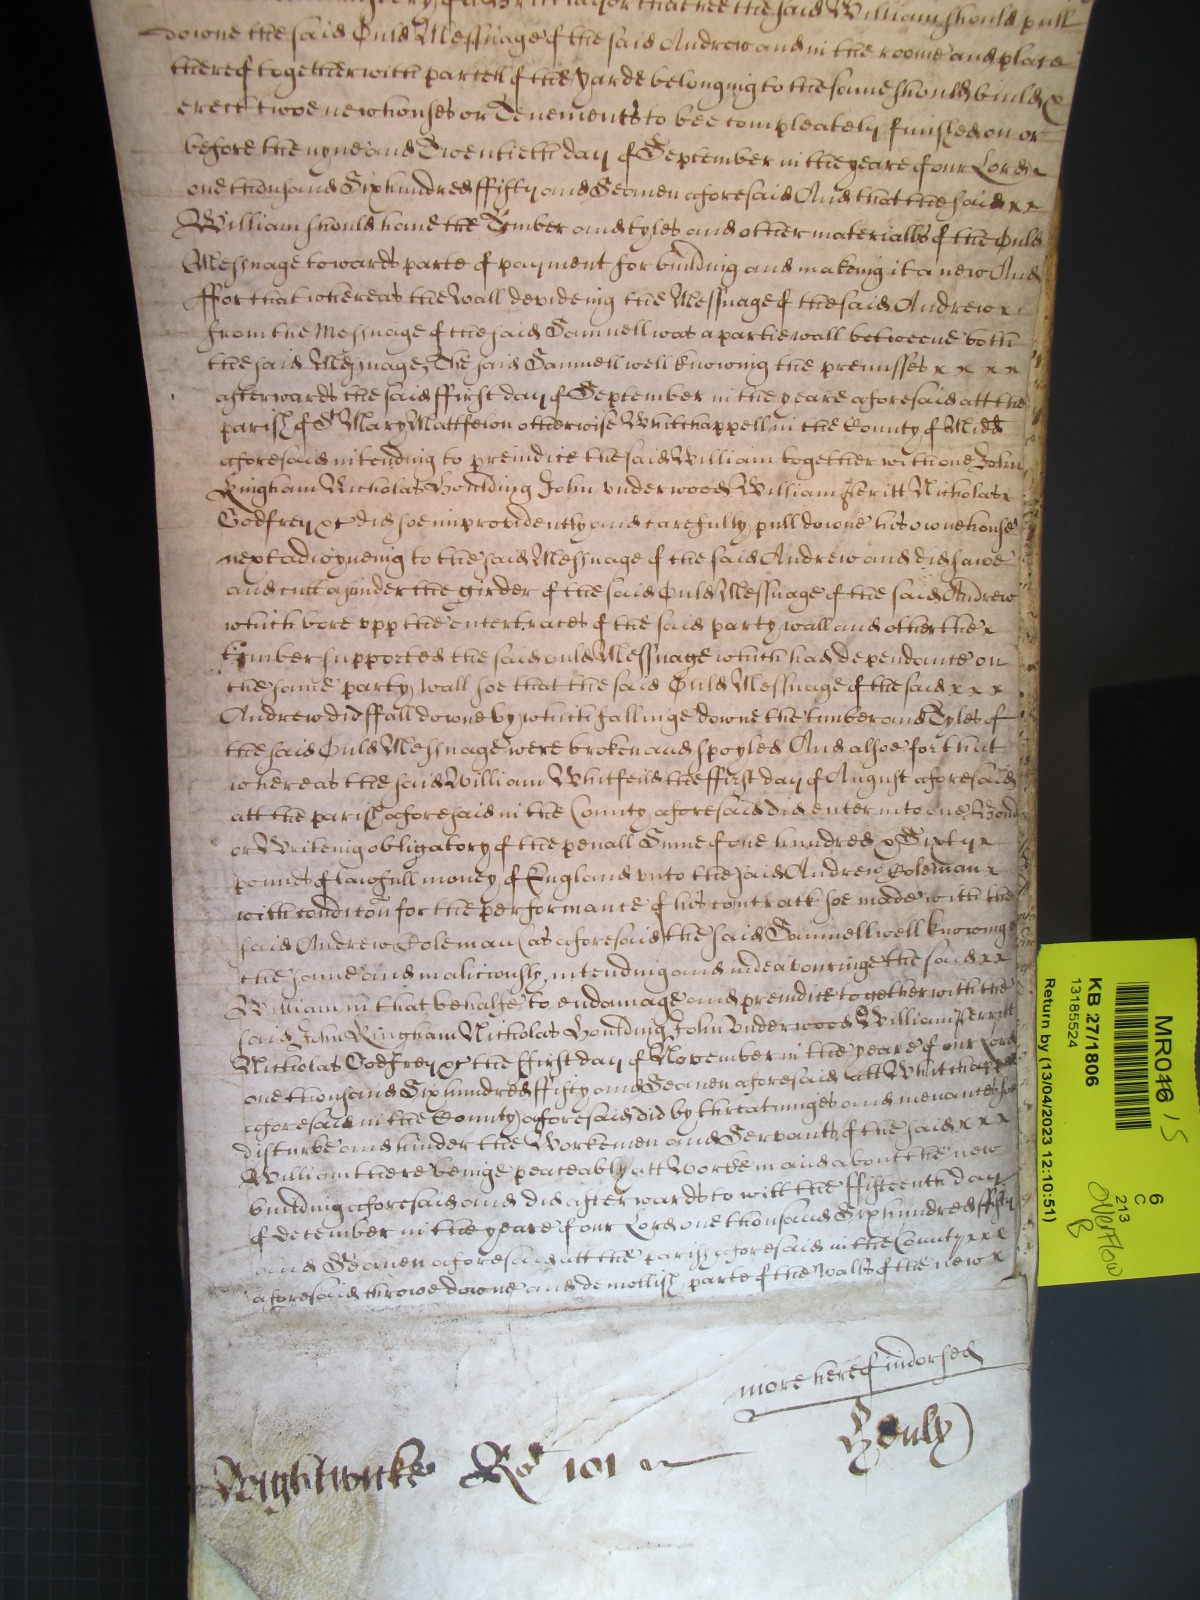 that hee the said William should pull
downe the said Ould Messuage of the said Andrew and in the roome and place
thereof together with parcell of the Yarde belonging to the same should build &
erect twoe new houses or Tenements to bee compleately finished on or
before the nyne and Twentieth day of September in the yeare of our Lord
one thousand Six hundred ffifty and Seaven aforesaid And that the said x x
William should have the Tymber and tyles and other materialls of the Ould
Messuage towards parte of payment for building and makeing it a new And
ffor that whereas the Wall devideing the Messuage of the said Andrew x
from the Messuage of the said Samuell was a partie wall betweene both
the said Messuages The said Samuell well knowing the premisses x x x x
afterwards the said ffirst day of September in the yeare aforesaid att the
parish of St Mary Mattfelon otherwise Whitchappell in the County of Midd
aforesaid intending to preiudice the said William together with one John
Kingham Nicholas Houlding John Underwood William Perritt Nicholas x
Godfrey &c did soe improvidently and carefully pull downe his owne house
next adioyneing to the said Messuage of the said Andrew and did sawe
and cutt asunder the girder of the said Ould Messuage of the said Andrew
which bore upp the entertraces of the said party wall and other the x
tymber supported the said ould Messuage which had dependance on
the same party wall soe that the said Ould Messuage of the said x x x
Andrew did ffall downe by which fallinge downe the timber and Tyles of
the said Ould Messuage were broken and spoyled And alsoe for that
whereas the said William Whitfeild the ffirst day of August aforesaid
att the parish aforesaid in the County aforesaid did enter into one Bond
or Writeing obligatory of the penall Sume of one hundred & Sixty x
pounds of lawfull money of England unto the said Andrew Coleman x
with condicon for the performance of his contract soe made with the
said Andrew Coleman (as aforesaid) the said Samuell well knowing
the same and maliciously intending and indeavouringe the said x x
William in that behalfe to endamage and preiudice together with the
said John Kingham Nicholas Houlding John Underwood William Perritt
Nicholas Godfrey &c the ffirst day of November in the yeare of our Lord
one thousand Six hundred ffifty and Seaven aforesaid att Whitchappell
aforesaid in the County aforesaid did by threatninges and menaces soe
disturbe and hinder the Workemen and Servants of the said x x x
William there beinge peaceably att Worke in and about the new
building aforesaid and did afterwards to witt the ffifteenth day
of december in the yeare of our Lord one thousand Six hundred ffifty
and Seaven aforesaid att the parish aforesaid in the County x x x
aforesaid throwe downe and demollish parte of the Walls of the new x
more hereof indorsed
Rightwicke Ro 101
MR046 / 15
KB 27/1806
13185524
Return by (13/04/2023 12:10:51)
6
C
213
Overflow
B